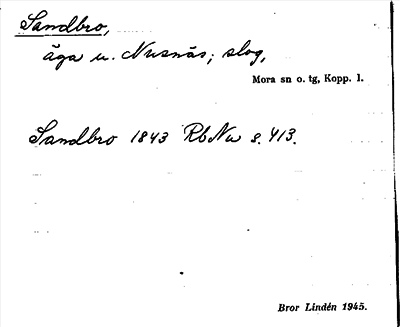 Sandbro,
äga u. Nusnäs; slog,
Mora sn o. tg, Kopp. l.
Sandbro 1843 Rb Nu s. 413.
Bror Lindén 1945.